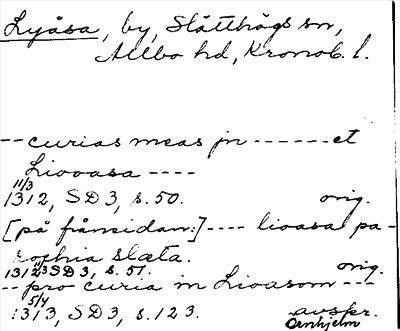 Lyåsa, by, Slätthögs sn,
Allbo hd, Kronob. l.
-- curias meas jn ------ et
Liovasa ----
11/3
1312, SD 3, s. 50. orig.
[på frånsidan:] ---- lioasa pa-
rothia slæta.
1312 11/3 SD 3, s. 51. orig.
-- pro curia in Lioasom ---
5/4
1313, SD 3, s. 123. avskr.
Örnhjelm